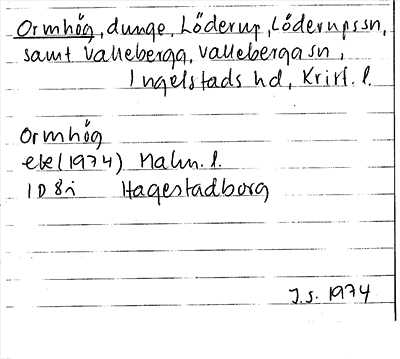 Ormhög, dunge, Löderup, Löderupssn,
samt Valleberga, Vallebergasn,
Ingelstads hd, Krist. l.
Ormhög
ek (1974) Malm. l.
1D 8i Hagestadborg
J.S. 1974